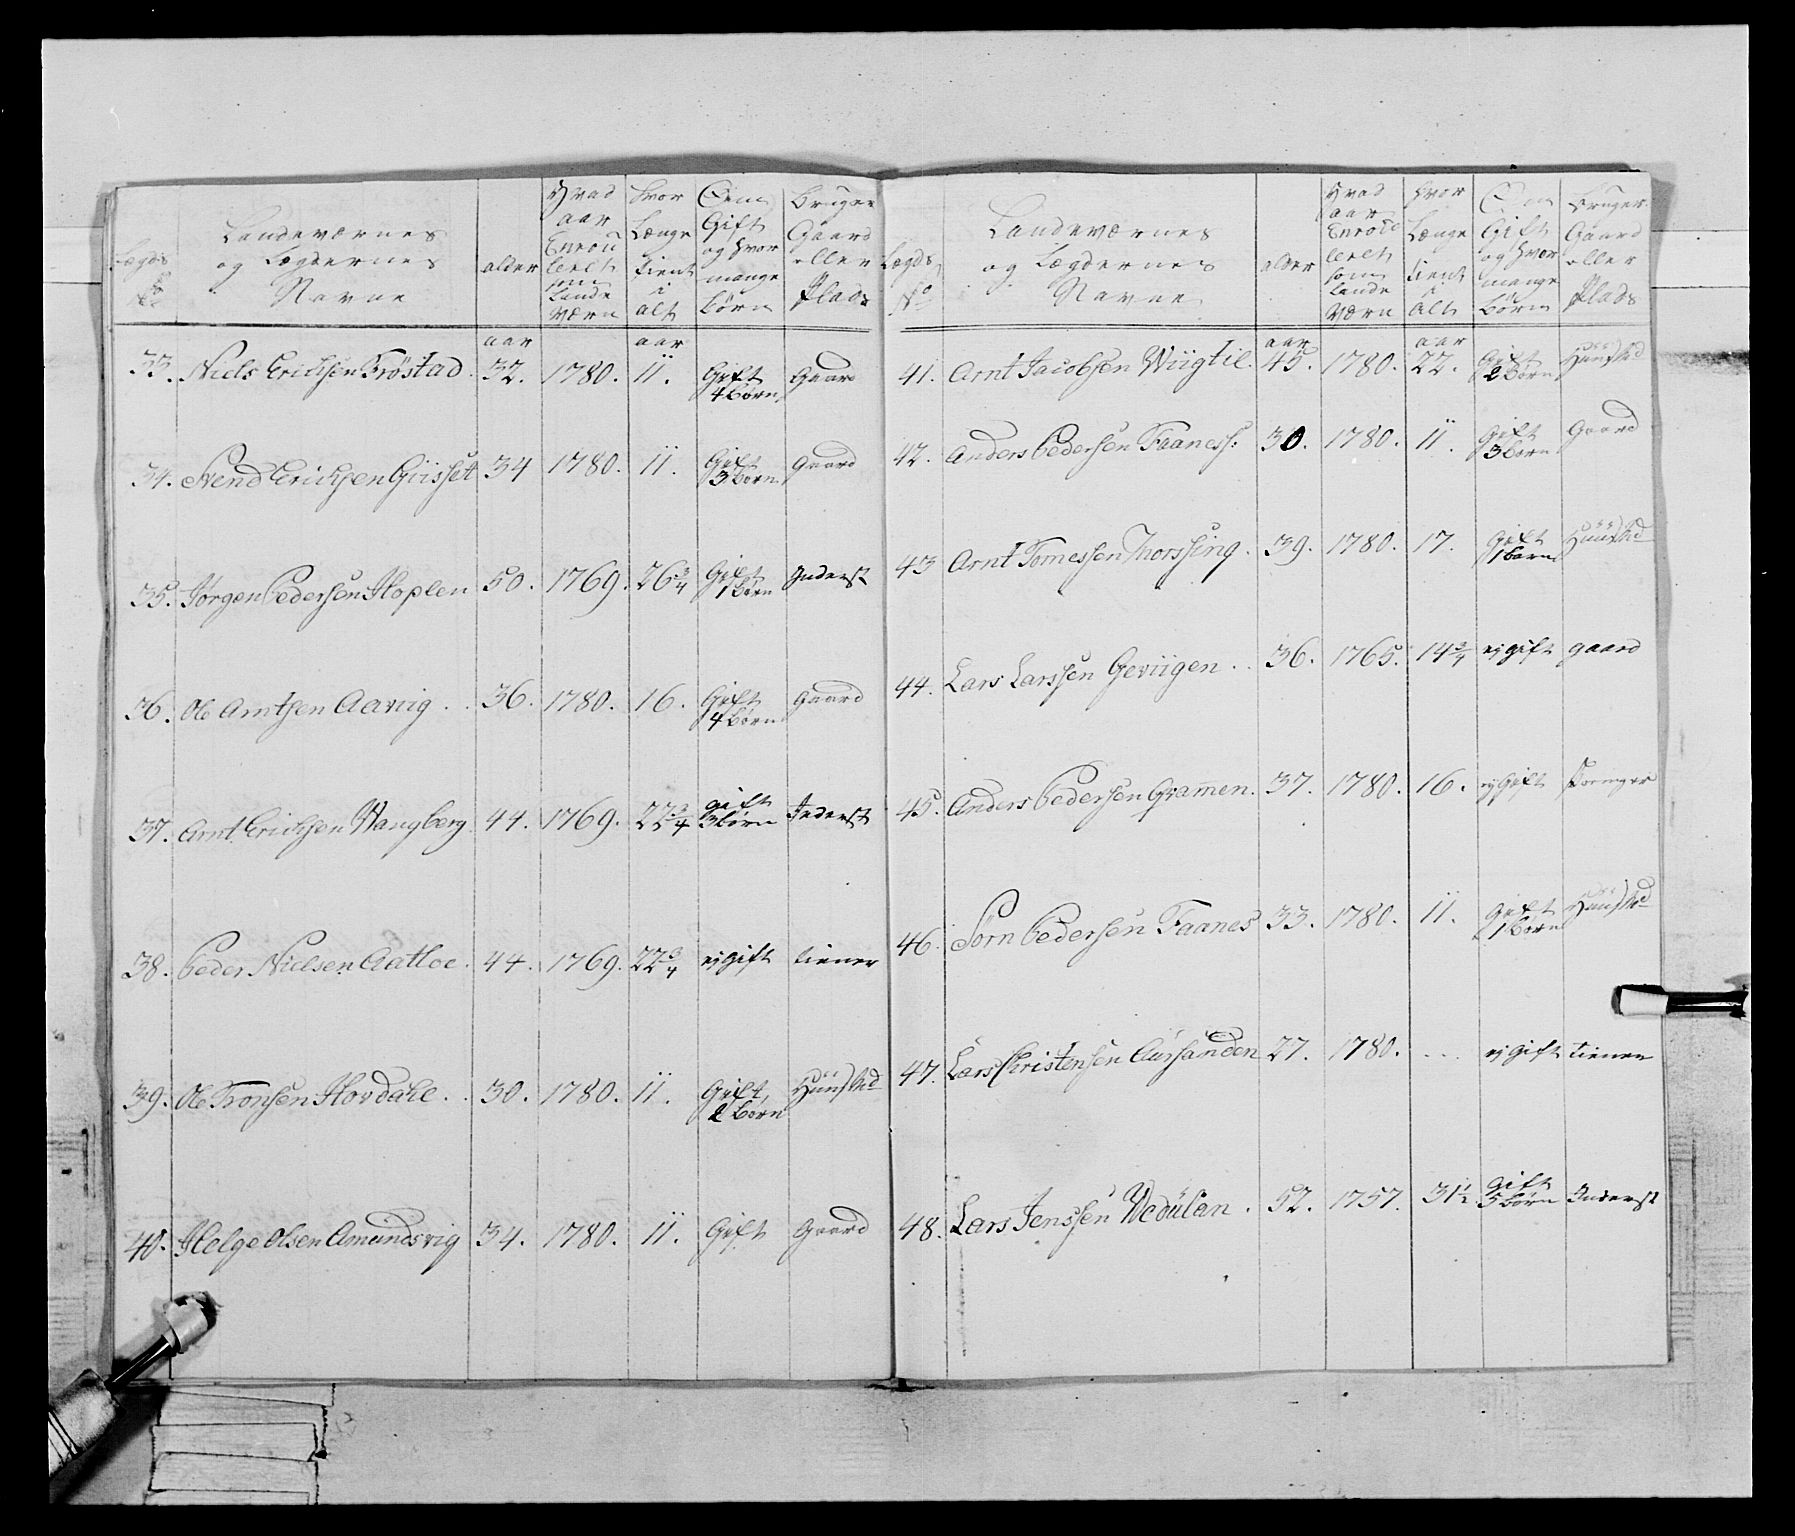 Lægds No | Landeværnes og Lægdernes Navne | alder | Hvad aar Enroulleret som Lande Værn | Hvor Længe tient i alt | Om Gift og Hvor mange børn | bruger Gaard eller Plads
aar | aar
33. Niels Erichsen Fröstad. 32. 1780. 11. Gift 4 börn Gaard
34. Svend Erichsen Giisset 34 1780. 11. Gift 3 börn Gaard
35. Jörgen Pedersen Hoplen 50. 1769. 26 3/4 Gift 1 börn Inderst
36. Ole Arntsen Aaviig . . 36. 1780. 16. Gift 4 börn Gaard
37. Arnt Erichsen Wangberg 44. 1769. 22 3/4 gift 3 börn Inderst
38. Peder Nielsen Aatloe. 44. 1769. 22 3/4 ej gift tiener
39. Ole Tronsen Hovdahl . . 30. 1780. 11. Gift, 2 börn Huusmd
40. Helge Olsen Amundsvig 34. 1780. 11. Gift Gaard
Lægds No | Landeværnes og Lægdernes Navne | alder | Hvad aar Enroulleret som lande Værn | Hvor Længe tient i alt | Om Gift og Hvor mange börn | bruger Gaard eller Plads
aar | aar
41. Arnt Jacobsen Wiigtil. 45. 1780. 22. Gift 2 börn Huusmd
42. Anders Pedersen Faaness: 30. 1780. 11. Gift 3 börn Gaard
43 Arnt Tomessen Thorssing. 39. 1780. 17. Gift 1 barn Huusmd
44. Lars Larssen Geviigen . . 36. 1765. 14 3/4 ej gift gaard
45. Anders Pedersen Gramen. 37. 1780. 16. ej Gift
46. Sörn Pedersen Faanes 33. 1780. 11. Gift 1 börn Huusmd
47. Lars Christensen Aursanden 27. 1780. ... ej Gift tiener
48. Lars Jenssen Wedulan . 52. 1757. 31 1/2 gift 5 börn Inderst